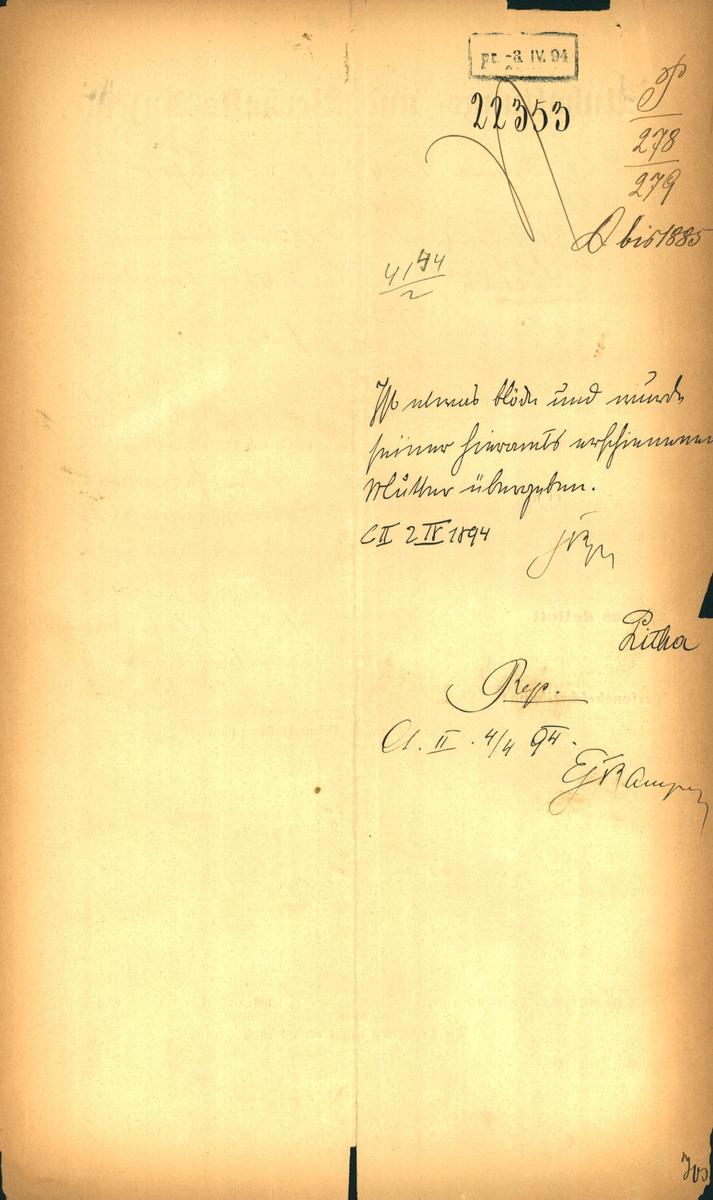 pr. -3. IV. 94
22353
P
278
279
A bis 1885
4/4 94
2
Ist etwas blöde und wurde
seiner hieramts erschienenen
Mutter übergeben.
C II 2 IV 1894
Litka
Rep.
Cl. II. 4/4 94.